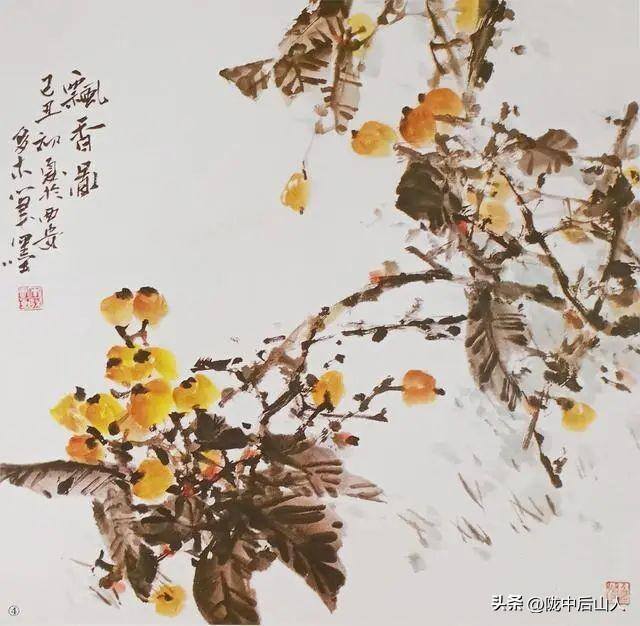 飄香圖
己丑初夏於西安
墨
④
头条 @陇中后山人